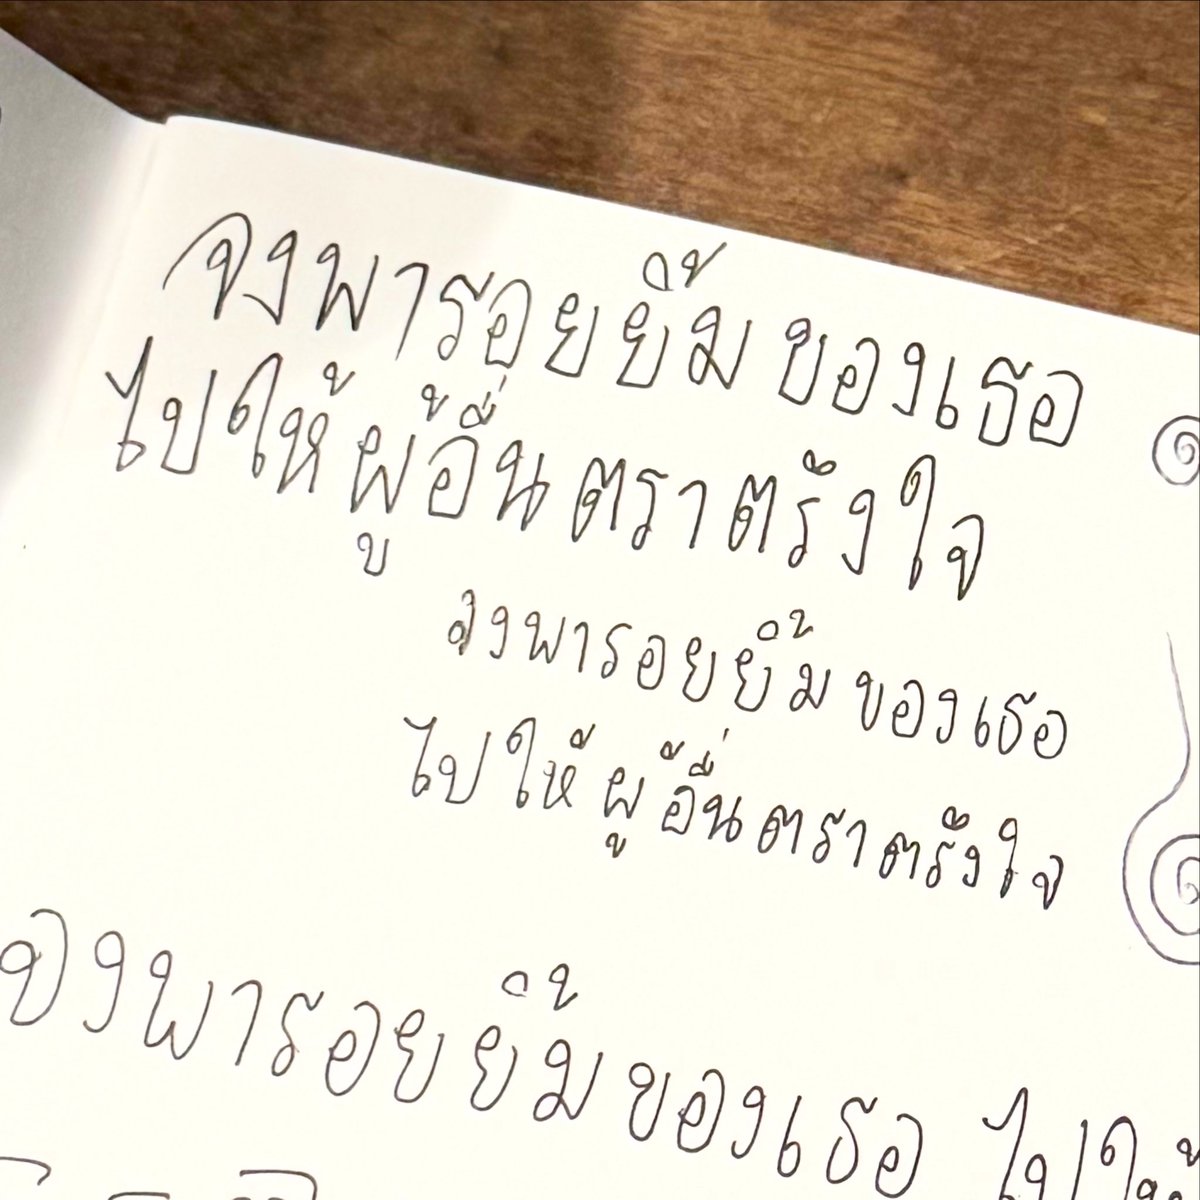 จงพารอยยิ้มของเธอ
ไปให้ผู้อื่นตราตรึงใจ
จงพารอยยิ้มของเธอ
ไปให้ผู้อื่นตราตรึงใจ
จงพารอยยิ้มของเธอ ไปให้